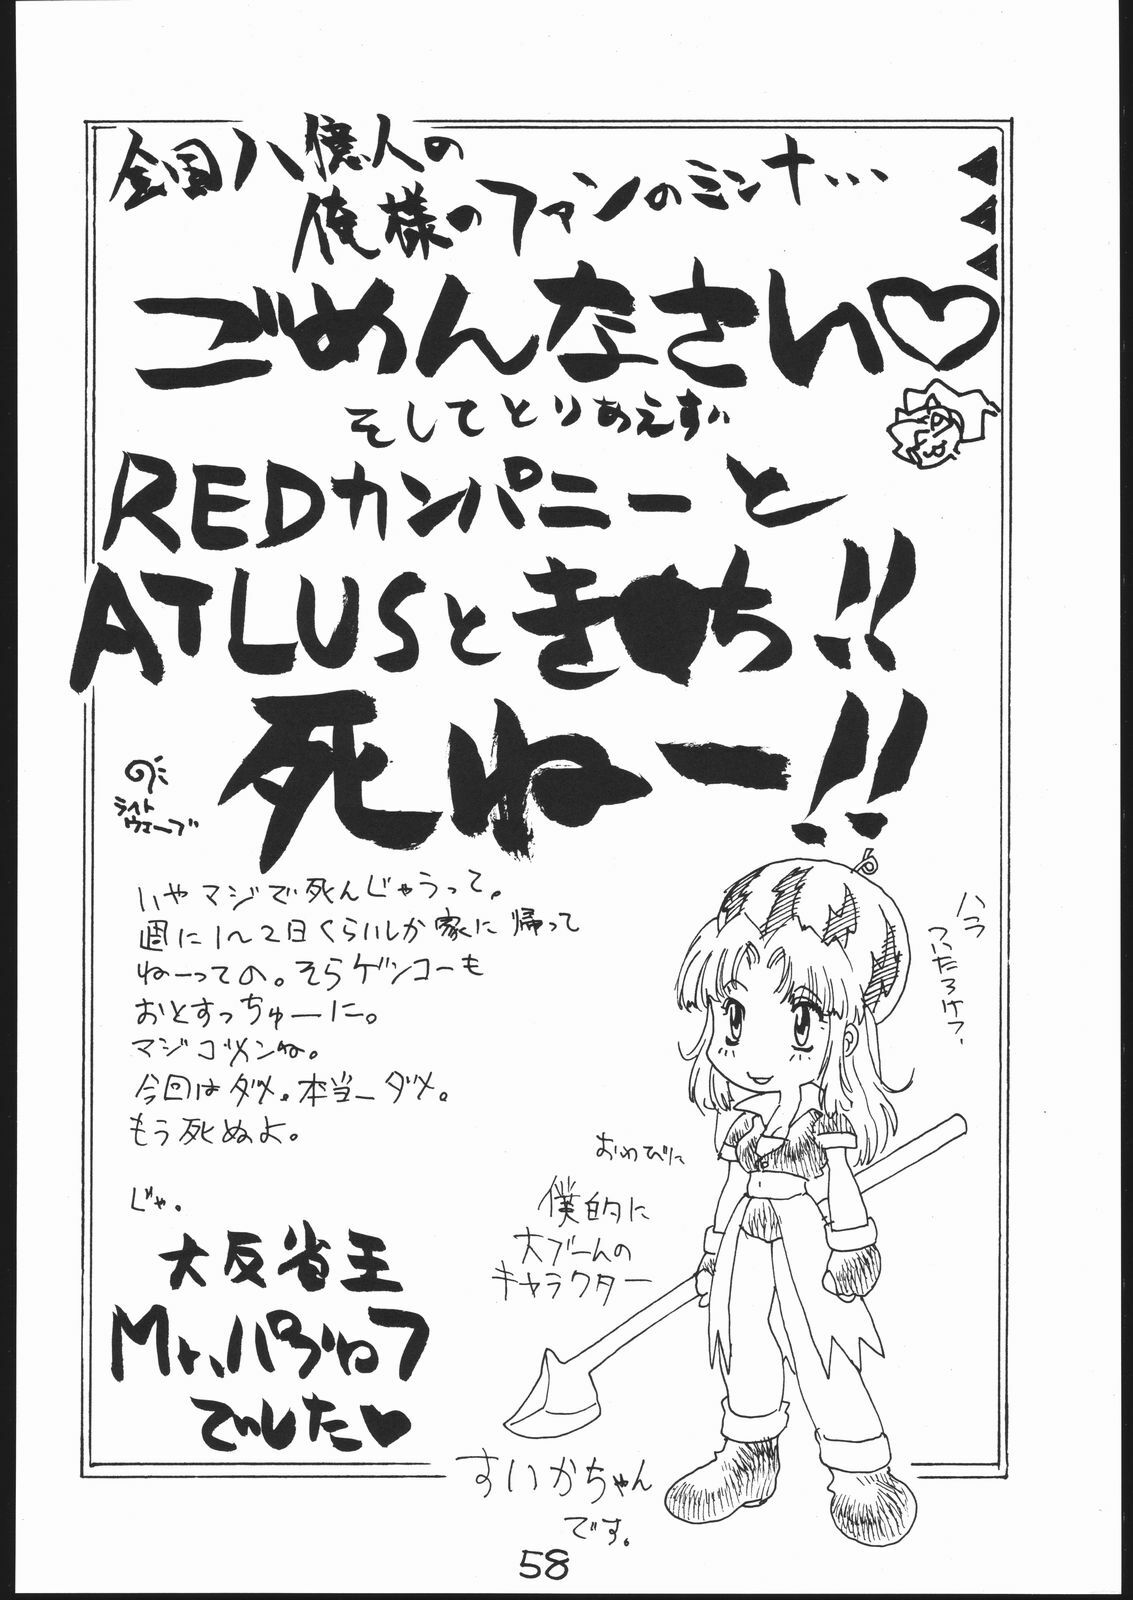 全国八億人の
俺様のファンのミンナ...
ごめんなさい♡
そしてとりあえず
REDカンパニーと
ATLUSとき●ち!!
死ねー!!
ライト
ウェーブ
いやマジで死んじゃうって。
週に1〜2日くらいしか家に帰って
ねーっての。そらゲンコーも
おとすっちゅーに。
マジゴメンね。
今回はダメ。本当ーダメ。
もう死ぬよ。
じゃ。
大反省王
Mr.パブロフ
でした♥
ハラ
ついたろけっ
おわびに
僕的に
大ブームの
キャラクター
すいかちゃん
です。
58